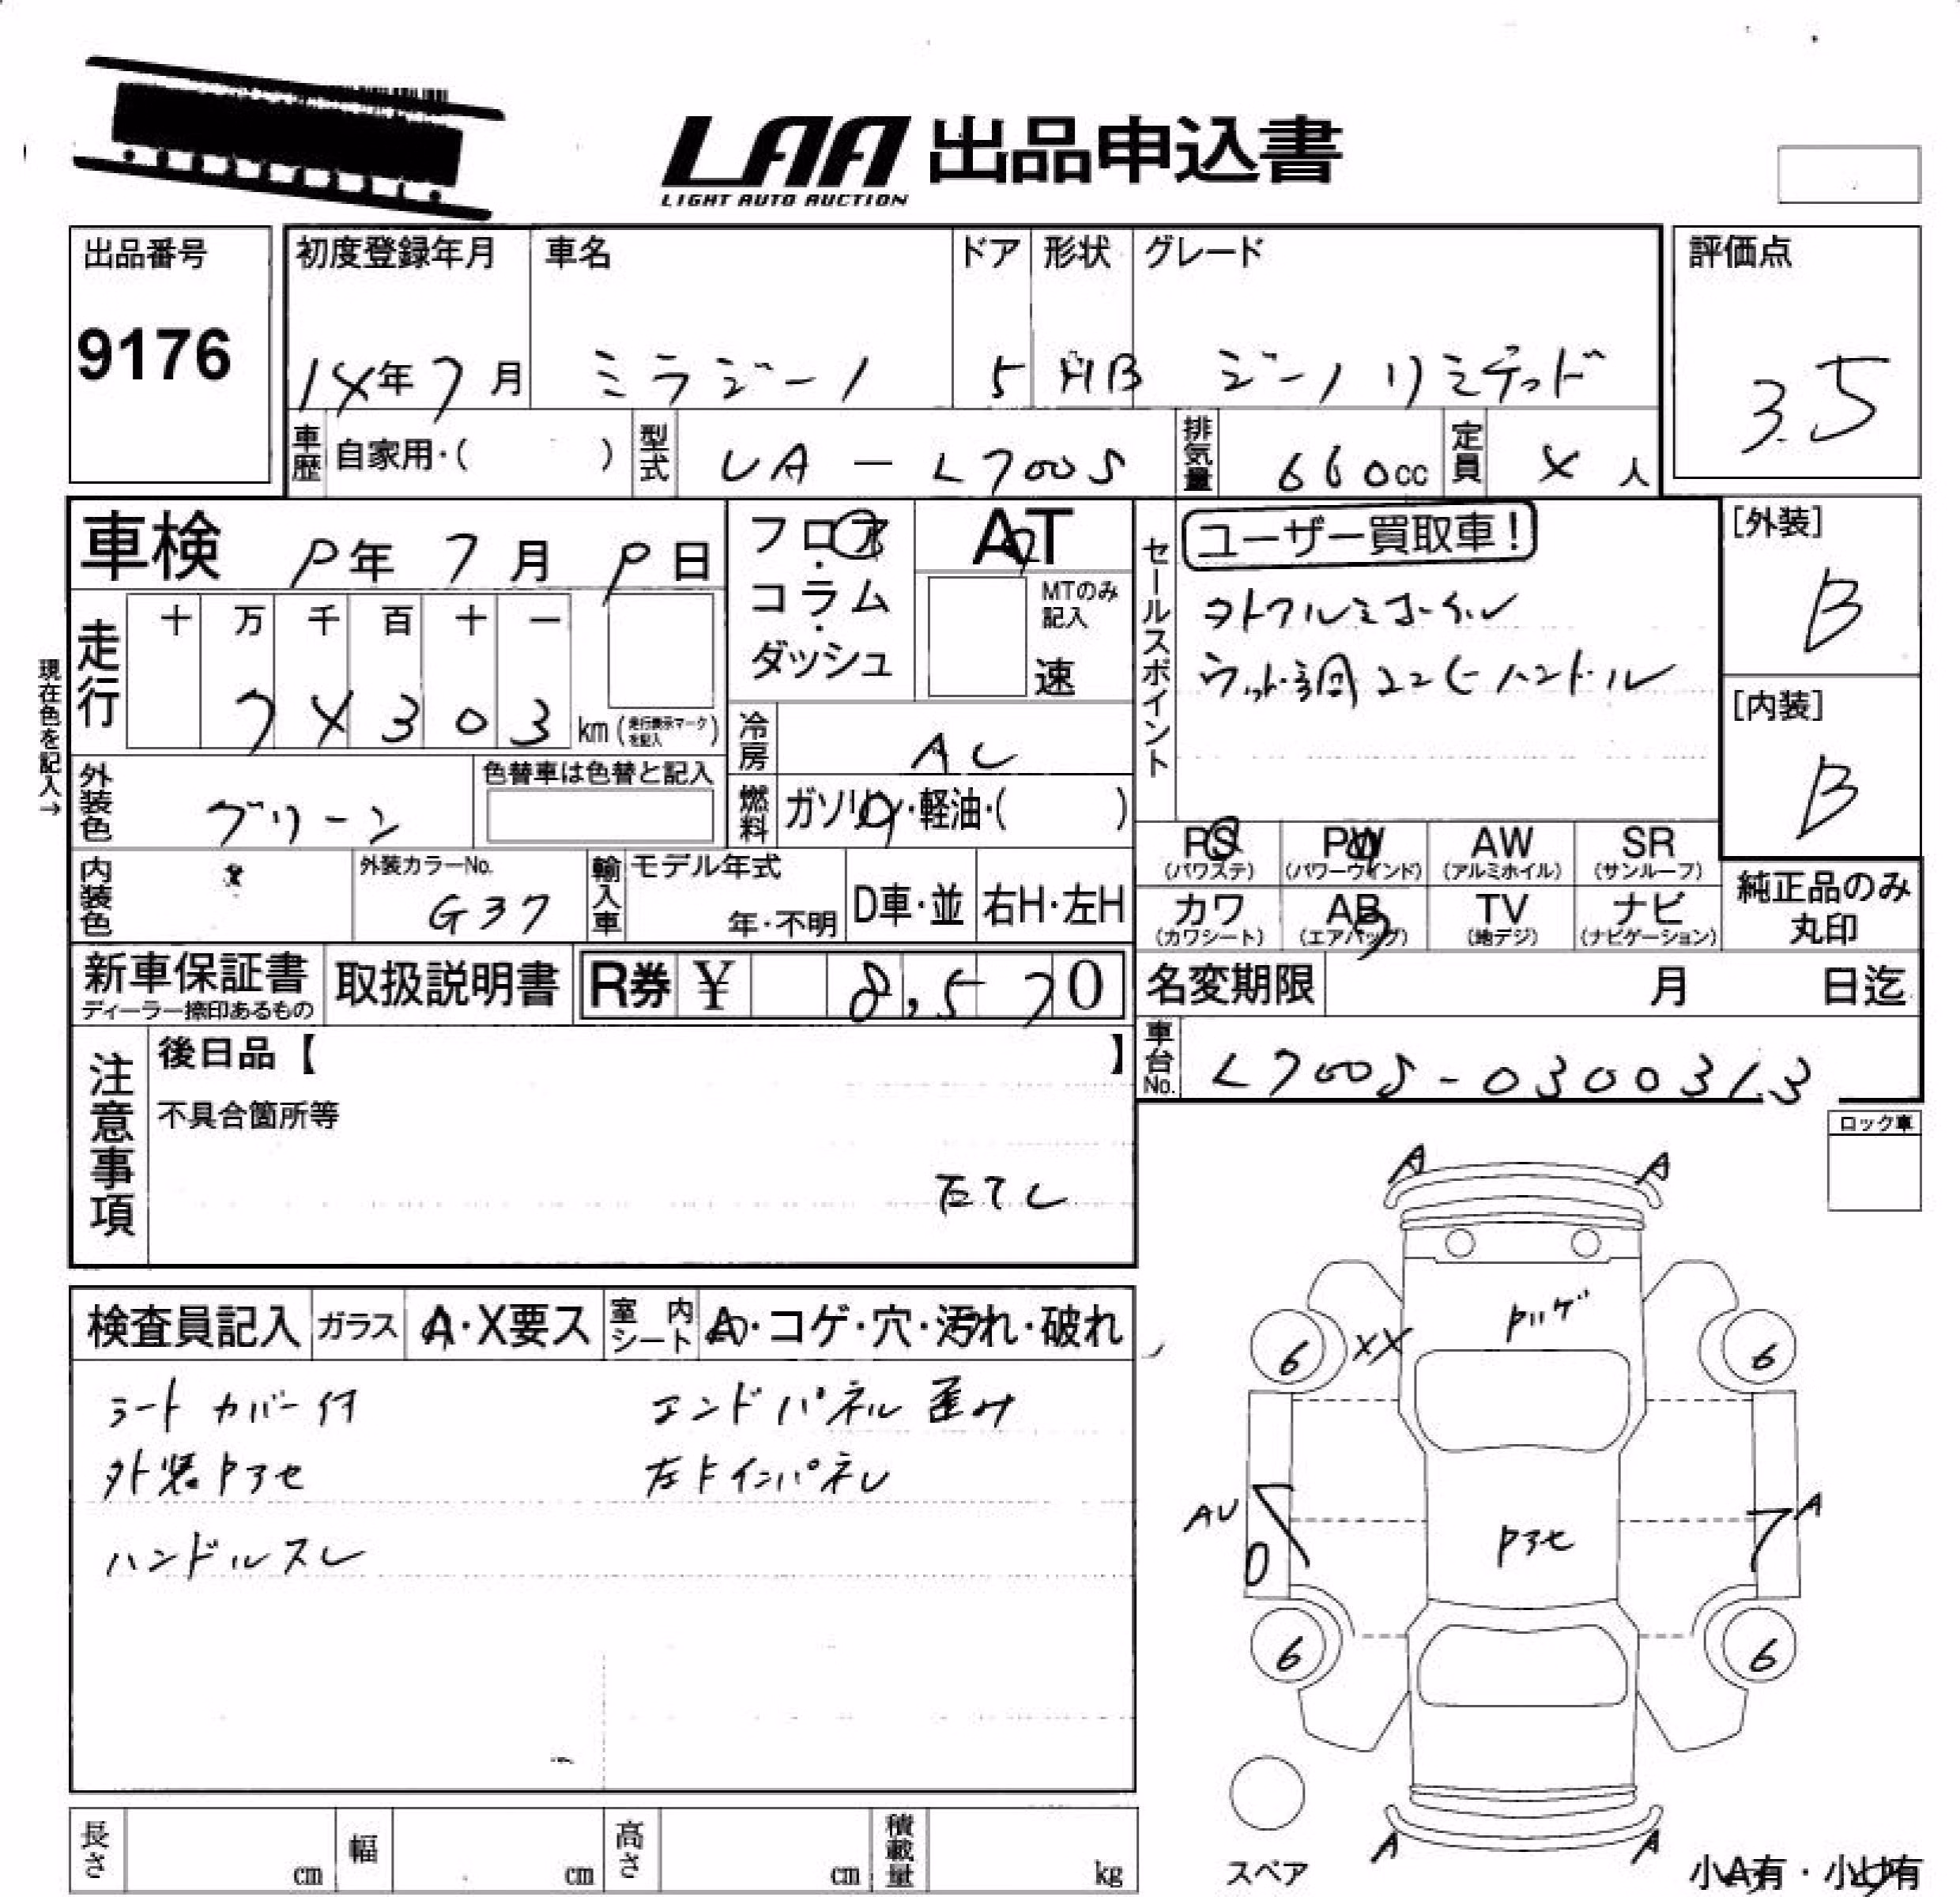 LAA 出品申込書
LIGHT AUTO AUCTION
出品番号
9176
初度登録年月
14年7月
車名
ミラジーノ
ドア
5
形状
HB
グレード
ジーノリミテッド
評価点
3.5
車歴 自家用・( )
型式 UA-L700S
排気量 660cc
定員 4人
車検 年7月 日
フロア・コラム・ダッシュ
AT
MTのみ記入
速
セールスポイント
ユーザー買取車!
外アルミホイール
ウッド調コンビハンドル
[外装]
B
[内装]
B
現在色を記入→
走行
十 万 千 百 十 一
74303 km (走行表示マークを記入)
冷房 AC
外装色 グリーン
色替車は色替と記入
燃料 ガソリン・軽油・( )
内装色
外装カラーNo.
G37
輸入車
モデル年式
年・不明
D車・並
右H・左H
PS (パワステ)
PW (パワーウインド)
AW (アルミホイル)
SR (サンルーフ)
カワ (カワシート)
AB (エアバッグ)
TV (地デジ)
ナビ (ナビゲーション)
純正品のみ丸印
新車保証書
ディーラー捺印あるもの
取扱説明書
R券 ¥ 8,570
名変期限 月 日迄
車台No. L700S-0300313
注意事項
後日品【 】
不具合箇所等
ロック車
検査員記入
ガラス A・X要ス
室内シート コゲ・穴・汚れ・破れ
シートカバー付
エンドパネル歪み
外装アセ
左Fインパネル
ハンドルスレ
A A
トビゲ
XX
6 6
AU
A
アセ
6 6
A A
スペア
小A有・小U有
長さ cm
幅 cm
高さ cm
積載量 kg